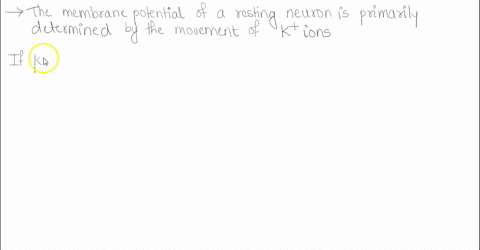 → The membrane potential of a resting neuron is primarily
determined by the movement of K+ ions
If K